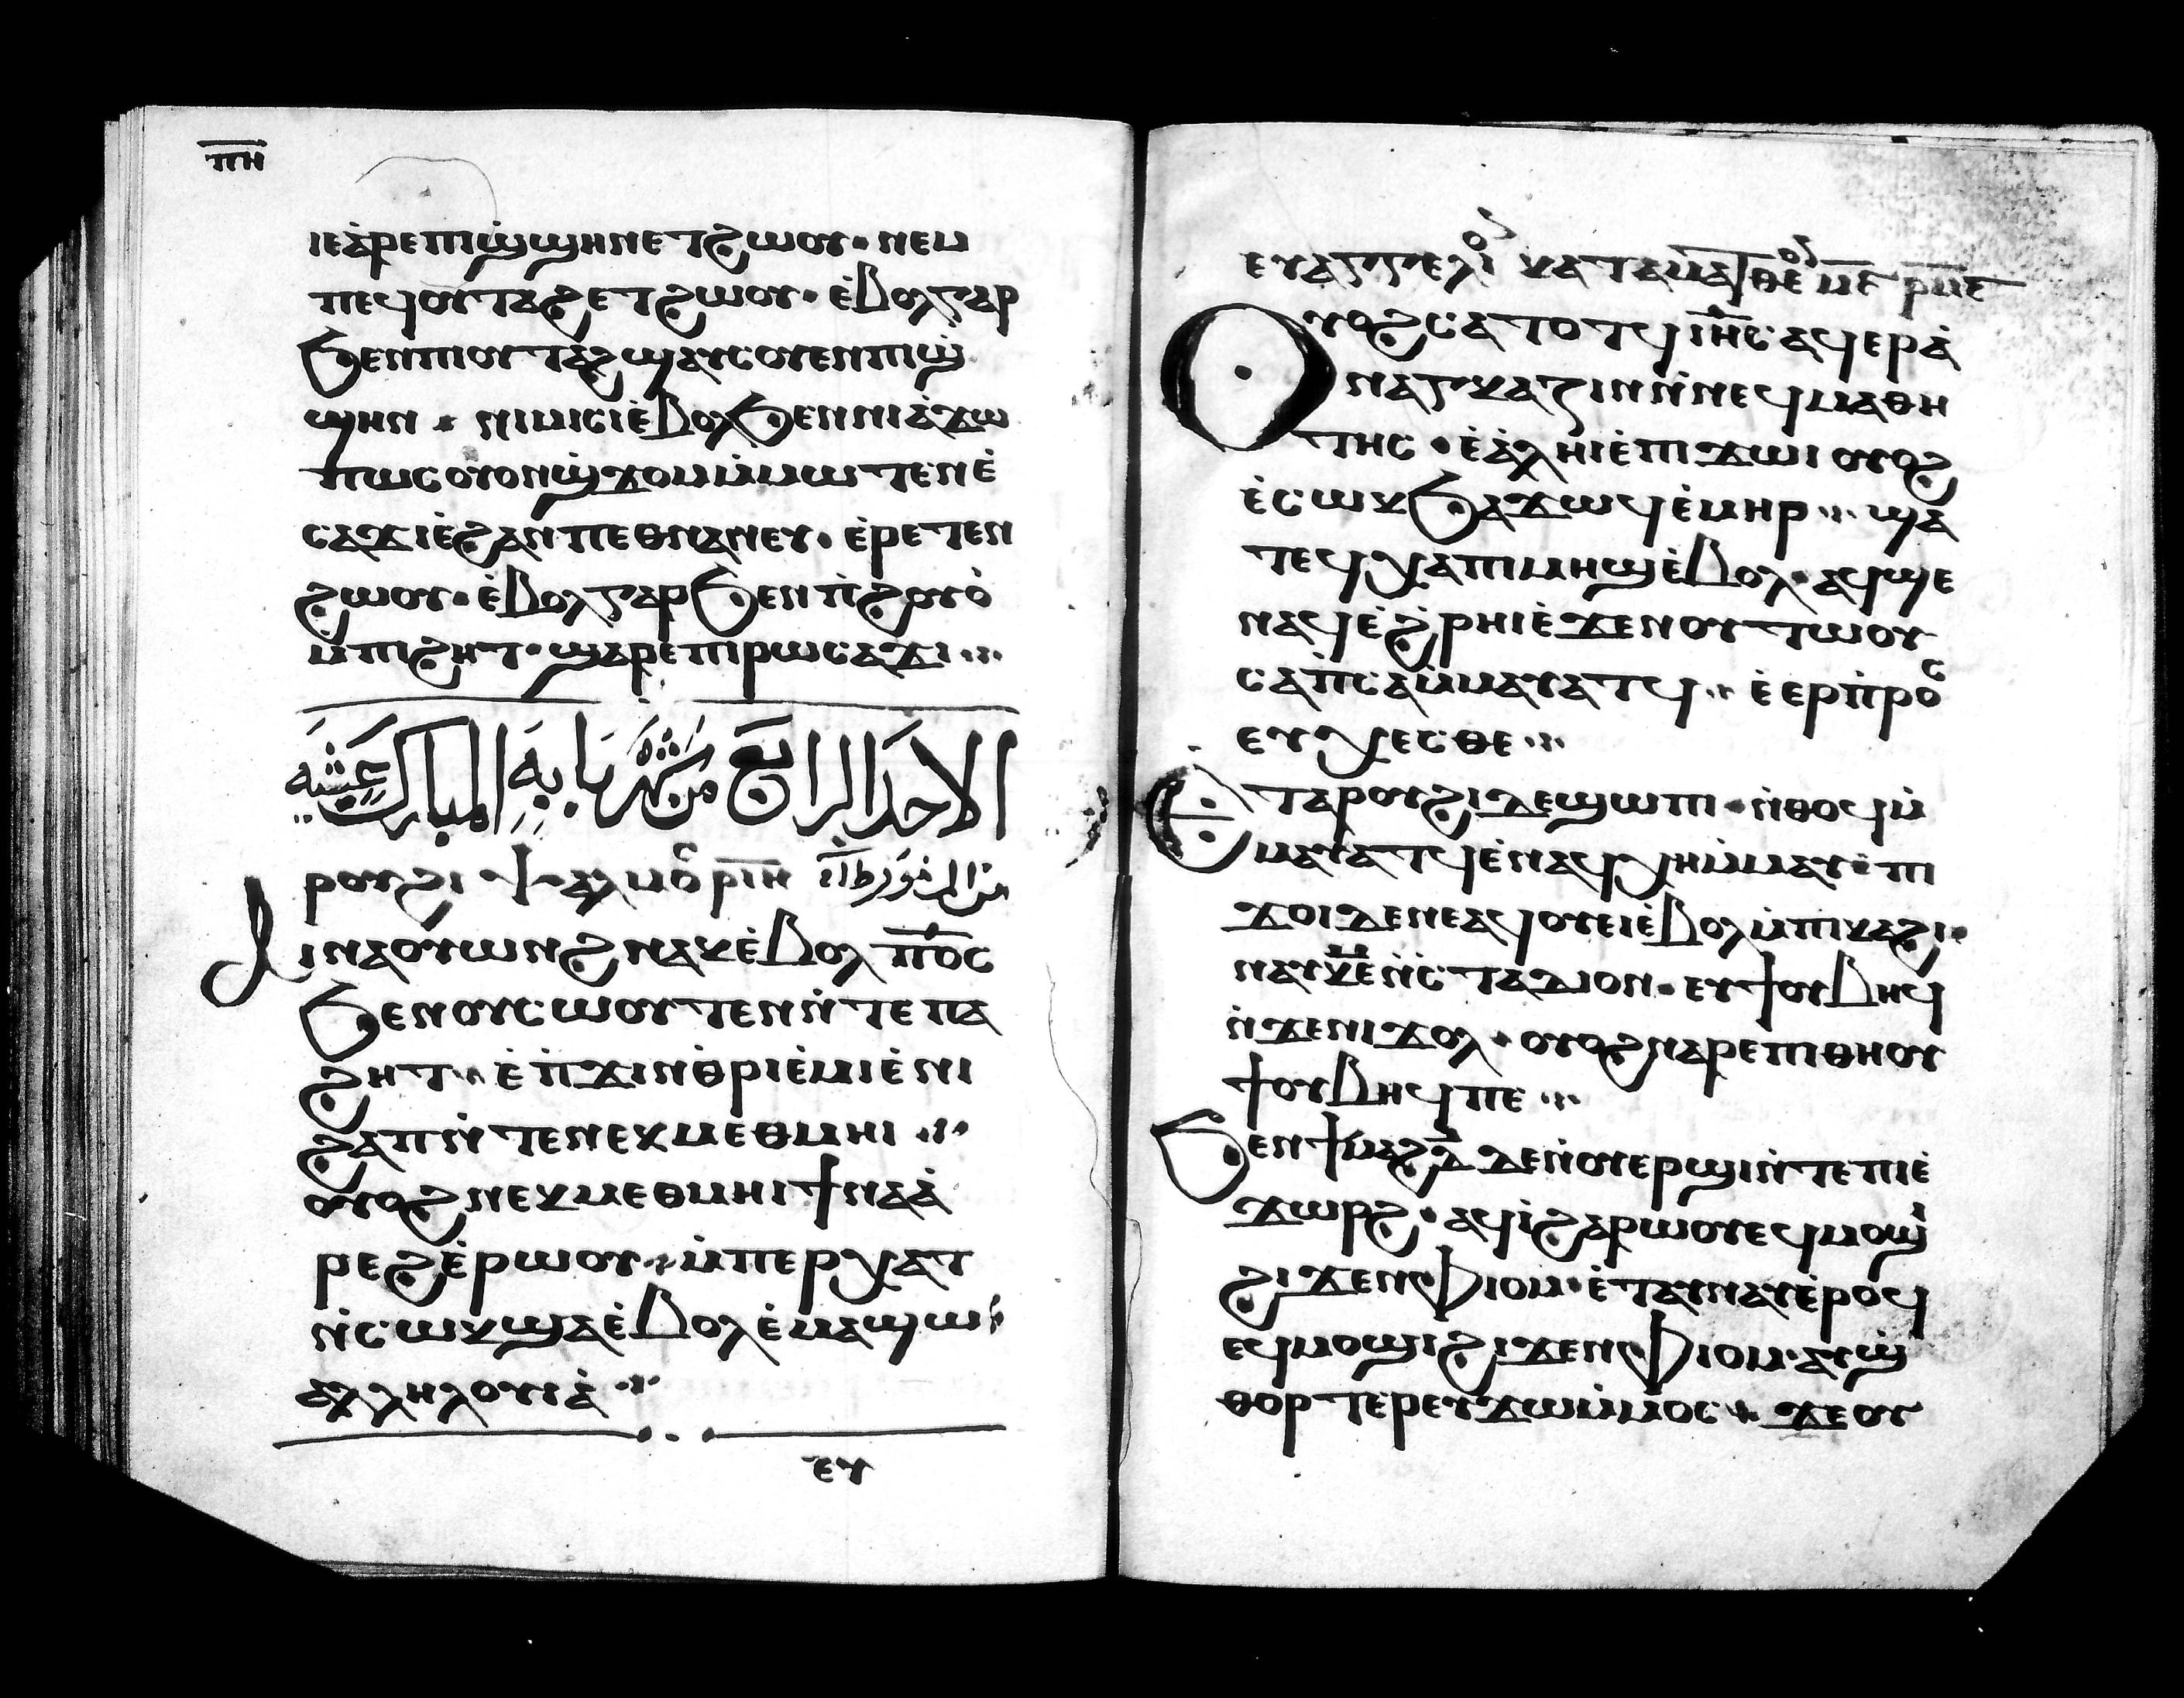 ⲡⲏ
ⲓⲉⲁ̀ⲣⲉⲡⲓϣ̀ϣⲏⲛⲉⲧϩⲱⲟⲩ· ⲛⲉⲙ
ⲡⲉϥⲟⲩⲧⲁϩⲉⲧϩⲱⲟⲩ· ⲉ̀ⲃⲟⲗⲅⲁⲣ
ϧⲉⲛⲡⲓⲟⲩⲧⲁϩϣⲁⲩⲥⲟⲩⲉⲛⲡⲓϣ̀
ϣⲏⲛ · ⲛⲓⲙⲓⲥⲓⲉ̀ⲃⲟⲗϧⲉⲛⲛⲓⲁ̀ϫⲱ
ⲡⲱⲥⲟⲩⲟⲛϣ̀ϫⲟⲙⲙ̀ⲙⲱⲧⲉⲛⲉ̀
ⲥⲁϫⲓⲉ̀ϩⲁⲛⲡⲉⲑⲛⲁⲛⲉⲩ· ⲉ̀ⲣⲉⲧⲉⲛ
ϩⲱⲟⲩ· ⲉ̀ⲃⲟⲗⲅⲁⲣϧⲉⲛⲡ̀ϩⲟⲩⲟ̀
ⲙ̀ⲡⲓϩⲏⲧ· ϣⲁⲣⲉⲡⲓⲣⲱⲥⲁϫⲓ ⁖
الاحد الرابع من شهر بابه المبارك عشيه
ⲣⲟⲩϩⲓ ⲯⲁⲗⲙⲟⲥ ⲣⲓⲏ
ϯⲛⲁⲟⲩⲱⲛϩⲛⲁⲕⲉ̀ⲃⲟⲗ ⲡⲟ̅ⲥ̅
ϧⲉⲛⲟⲩⲥⲱⲟⲩⲧⲉⲛⲛ̀ⲧⲉⲡⲁ
ϩⲏⲧ ⁖ ⲉ̀ⲡ̀ϫⲓⲛⲑ̀ⲣⲓⲉ̀ⲙⲓⲉ̀ⲛⲓ
ϩⲁⲡⲛ̀ⲧⲉⲛⲉⲕⲙⲉⲑⲙⲏⲓ ⁖
ⲟⲩⲟϩⲛⲉⲕⲙⲉⲑⲙⲏⲓϯⲛⲁⲁ̀
ⲣⲉϩⲉ̀ⲣⲱⲟⲩ ⁖ ⲙ̀ⲡⲉⲣⲭⲁⲧ
ⲛ̀ⲥⲱⲕϣⲁⲉ̀ⲃⲟⲗⲉ̀ⲙⲁϣⲱ
ⲁⲗⲗⲏⲗⲟⲩⲓⲁ̀ ⁖
ⲉⲩ
ⲉⲩⲁⲅⲅⲉⲗⲓⲟⲛ ⲕⲁⲧⲁⲙⲁⲧⲑⲉⲟⲛ ⲙ̅ⲉ̅ ⲣ̅ⲙ̅ⲉ̅
ⲟⲩⲟϩⲥⲁⲧⲟⲧϥ ⲓⲏ̅ⲥ̅ⲁϥⲉⲣⲁ̀
ⲛⲁⲅⲕⲁⲍⲓⲛⲛ̀ⲛⲉϥⲙⲁⲑⲏ
ⲧⲏⲥ · ⲉ̀ⲁ̀ⲗⲏⲓⲉ̀ⲡⲓϫⲱⲓ ⲟⲩⲟϩ
ⲉ̀ⲥⲱⲕϧⲁϫⲱϥⲉ̀ⲙⲏⲣ ⁖ ϣⲁ
ⲧⲉϥⲭⲁⲡⲓⲙⲏϣⲉ̀ⲃⲟⲗ· ⲁϥϣⲉ
ⲛⲁϥⲉ̀ϩ̀ⲣⲏⲓⲉ̀ϫⲉⲛⲟⲩⲧⲱⲟⲩ
ⲥⲁⲡ̀ⲥⲁⲙ̀ⲙⲁⲩⲁⲧϥ ⁖ ⲉ̀ⲉⲣⲡ̀ⲣⲟⲥ
ⲉⲩⲭⲉⲥⲑⲉ ⁖
ⲉⲧⲁⲣⲟⲩϩⲓⲇⲉϣⲱⲡⲓ · ⲛ̀ⲑⲟϥⲙ̀
ⲙⲁⲩⲁⲧϥⲉ̀ⲛⲁϥⲭⲏⲙ̀ⲙⲁⲩ· ⲡⲓ
ϫⲟⲓⲇⲉⲛⲉⲁϥⲟⲩⲉⲓⲉ̀ⲃⲟⲗⲙ̀ⲡⲓⲕⲁϩⲓ·
ⲛⲁⲩⲕ̅ⲉ̅ⲛ̀ⲥⲧⲁⲇⲓⲟⲛ· ⲉⲩϯⲟⲩⲃⲏϥ
ⲛ̀ϫⲉⲛⲓϫⲟⲗ · ⲟⲩⲟϩⲛⲁⲣⲉⲡⲓⲑⲏⲟⲩ
ϯⲟⲩⲃⲏϥⲡⲉ ⁖
ϧⲉⲛϯⲙⲁϩⲇ̅ ⲇⲉⲛ̀ⲟⲩⲉⲣϣⲓⲛ̀ⲧⲉⲡⲓⲉ̀
ϫⲱⲣϩ· ⲁϥⲓ̀ϩⲁⲣⲱⲟⲩⲉϥⲙⲟϣⲓ
ϩⲓϫⲉⲛⲫⲓⲟⲙ· ⲉ̀ⲧⲁⲩⲛⲁⲩⲉ̀ⲣⲟϥ
ⲉϥⲙⲟϣⲓϩⲓϫⲉⲛⲫⲓⲟⲙ· ⲁⲩϣ̀
ⲑⲟⲣⲧⲉⲣⲉⲩϫⲱⲙ̀ⲙⲟⲥ · ϫⲉⲟⲩ